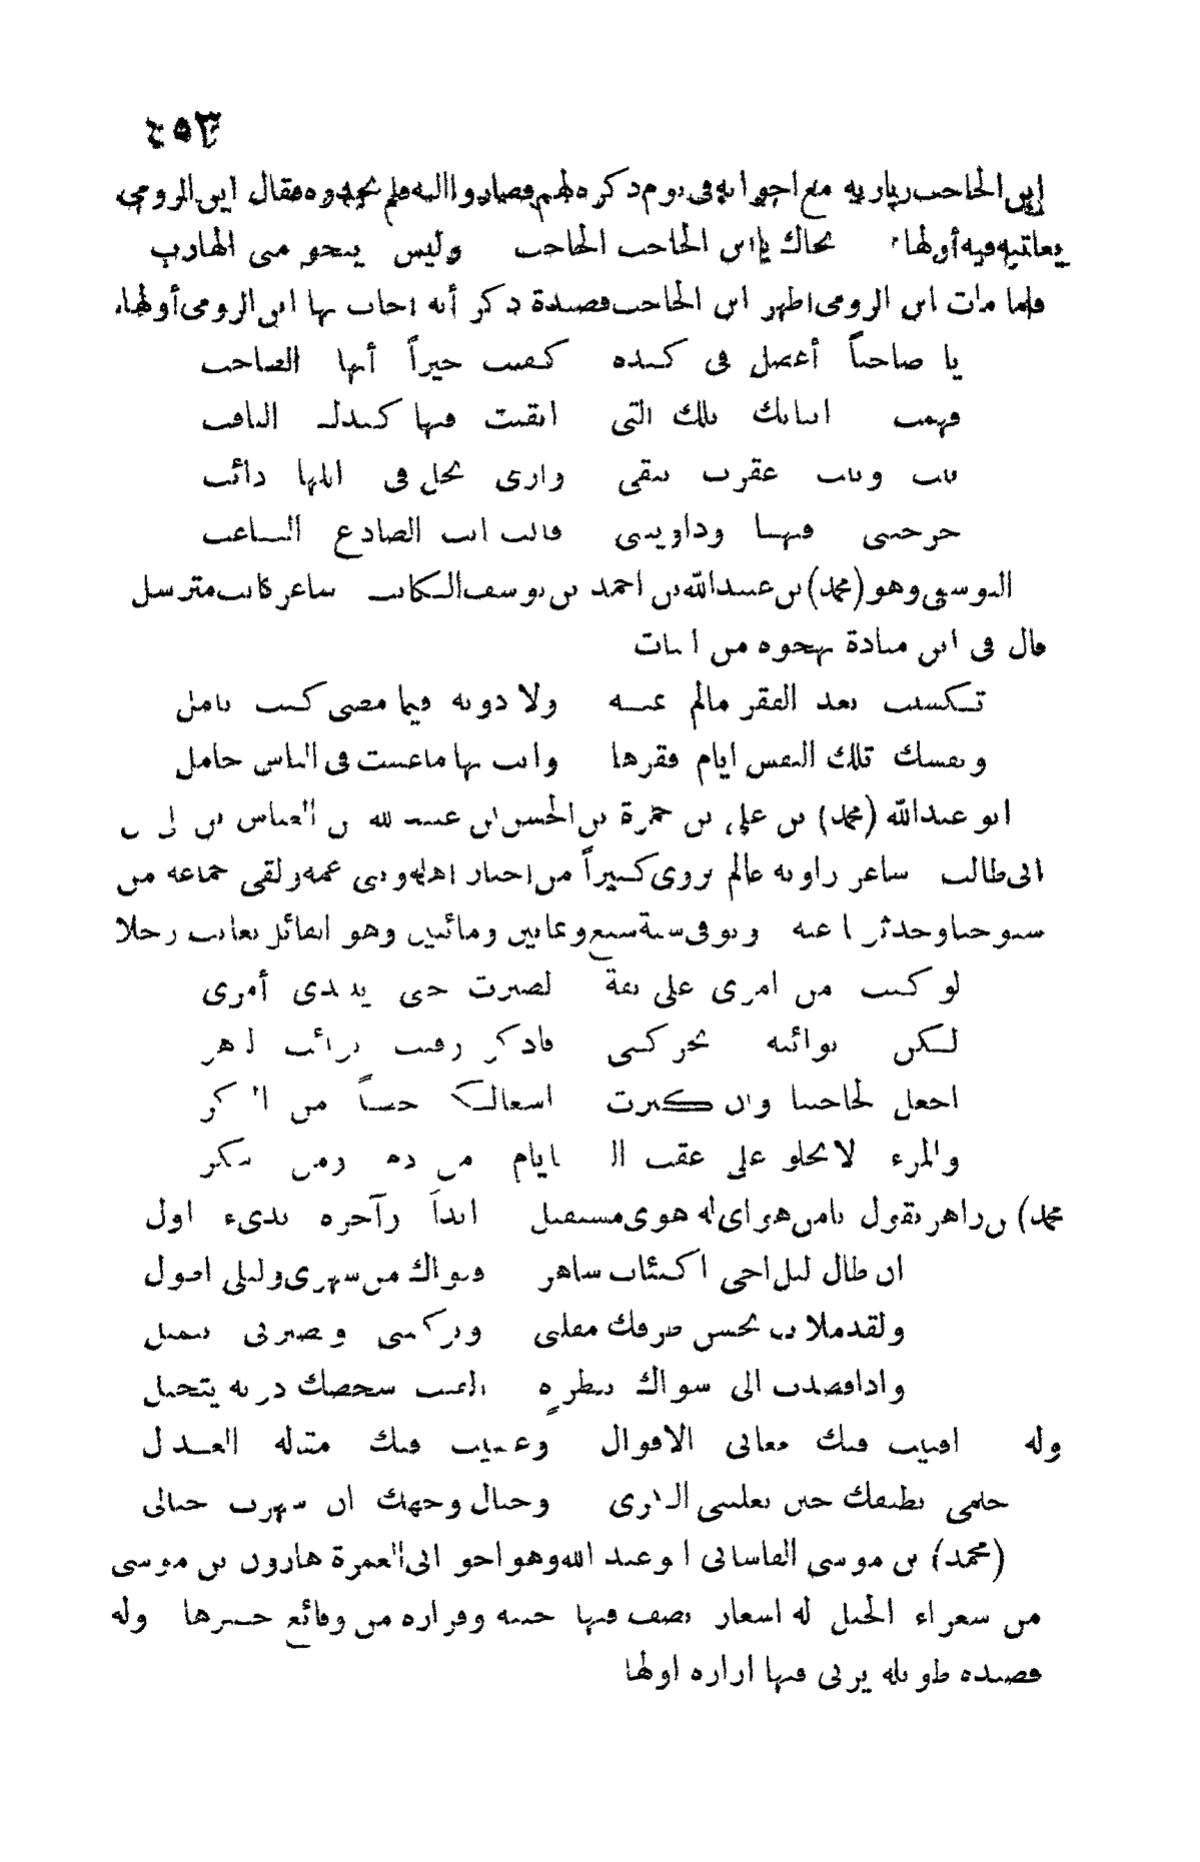 ٤٥٣
ابن الحاجب زيارته مع اخوانه فى يوم ذكره لهم فصاروا اليه فلم يجدوه فقال ابن الرومى
يعاتبه فيه أولها نجاك يا ابن الحاجب الحاجب وليس ينجو منى الهارب
فلما مات ابن الرومى اظهر ابن الحاجب قصيدة ذكر أنه اجاب بها ابن الرومى أولها
يا صاحباً أعضل فى كيده كفيت خيراً أيها الصاحب
فهمت ابياتك تلك التى فيها كيدك الثاقب
بيت وبيت عقرب تتقى وارى نحل فى اللها ذائب
جرحتنى فيها وداويتنى فأنت انت الصادع الشاعب
وهو (محمد) بن عبد الله بن احمد بن يوسف الكاتب شاعر كاتب مترسل
قال فى ابن ميادة يهجوه من ابيات
تكسبت بعد الفقر مالم ولا دونه فيما مضى كنت تأمل
ونفسك تلك النفس ايام فقرها وانت بها ماعشت فى الناس خامل
ابو عبد الله (محمد) بن على بن حمزة بن الحسن بن عبيد الله بن العباس بن على بن
ابى طالب شاعر راويه عالم يروى كثيراً من اخبار اهله وبنى عمه ولقى جماعه من
شيوخنا وحدثنا عنه وتوفى سنة سبع وثمانين ومائتين وهو القائل يعاتب رجلا
لو كنت من امرى على ثقة لصبرت حتى ينتدى أمرى
لكن نوائبه تحركنى فاذكر وقيت نوائب الدهر
اجعل لحاجتنا وان كثرت اشغالك حسباً من الذكر
والمرء لا يخلو على عقب الـ ايام من ذم ومن شكر
محمد) بن زاهر يقول يامن هواى له هوى مستقبل ابداً وآخره بدىء اول
ان طال ليل اخى اكتئاب ساهر فهواك من سهرى وليلى اطول
ولقد ملأت بحسن طرفك مقلتى وتركتنى وصبرتى
واذا قصدت الى سواك بنظرة الفيت شخصك دونه يتخيل
وله افنيت فيك معانى الاقوال وعصيت فيك مقاله العذال
وخيال وجهك ان سهرت خيالى
(محمد) بن موسى القاسانى ابو عبد الله وهو اخو ابى العمرة هارون بن موسى
من شعراء الجبل له اشعار يصف فيها جبنه وفراره من وقائع حضرها وله
قصيده طويله يرثى فيها ازاره اولها